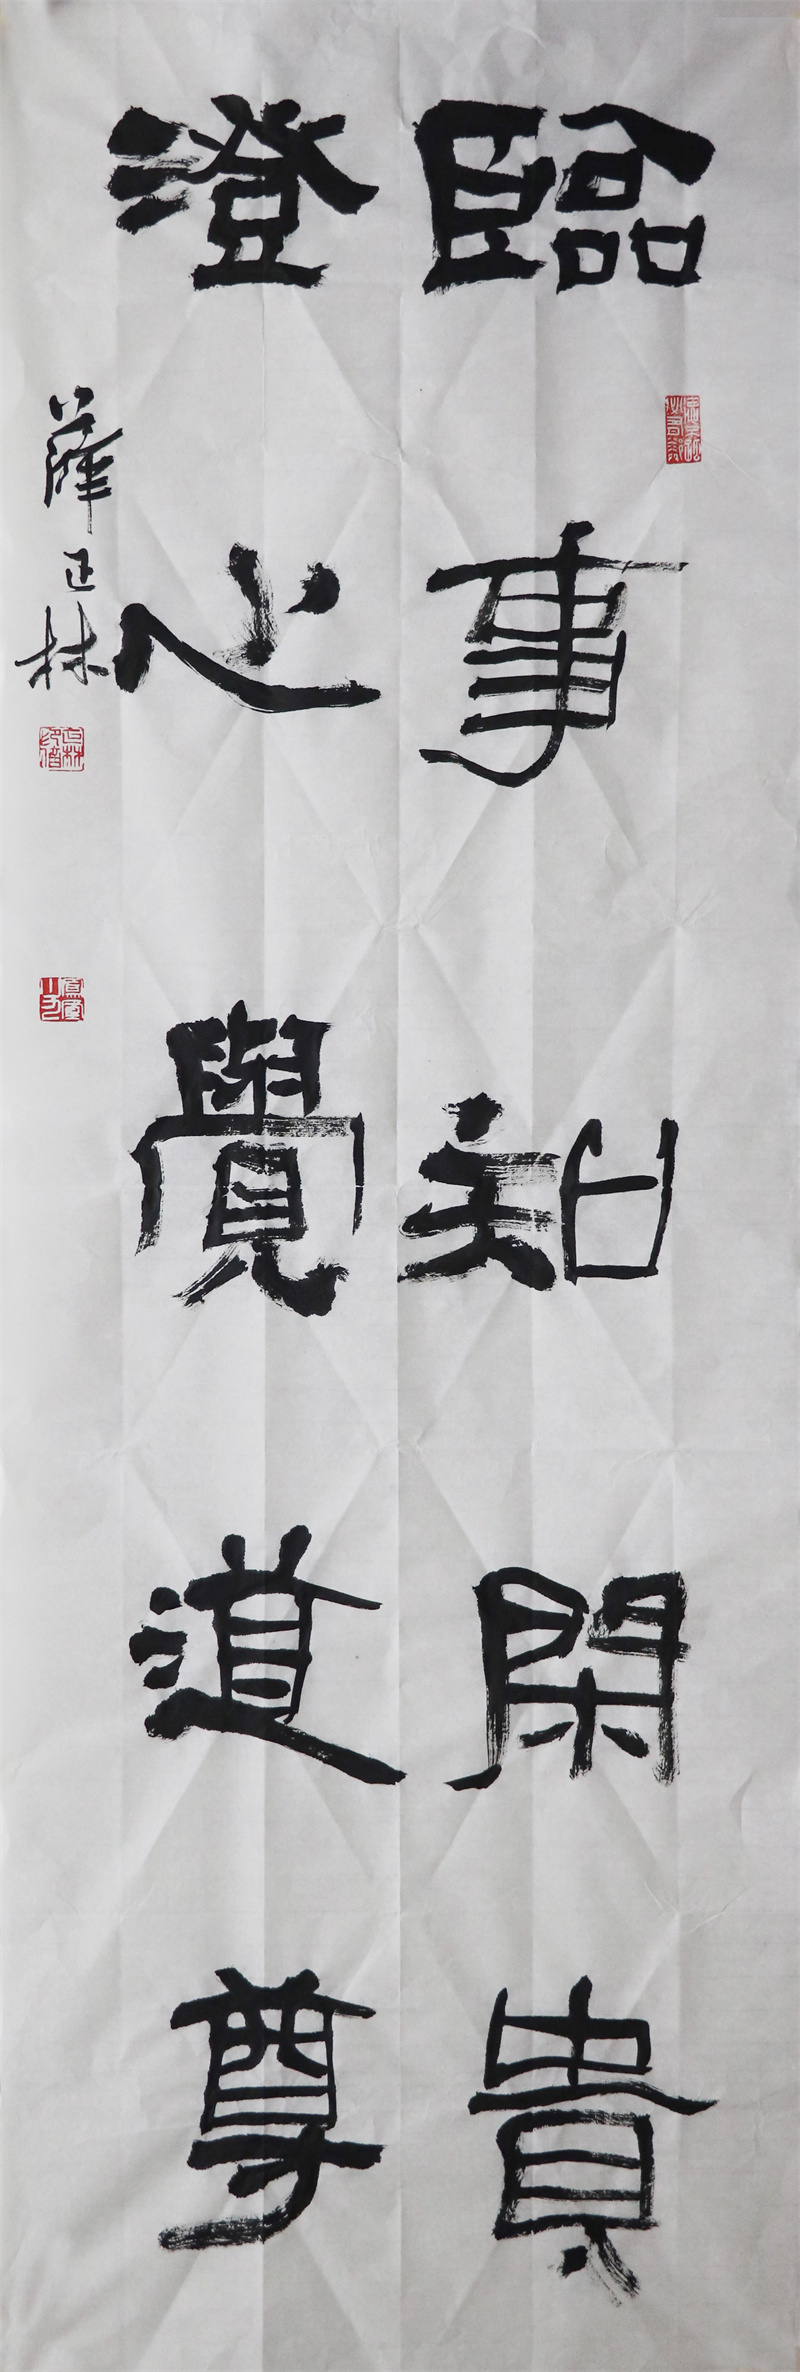 臨事知閑貴
澄心覺道尊
薛正林